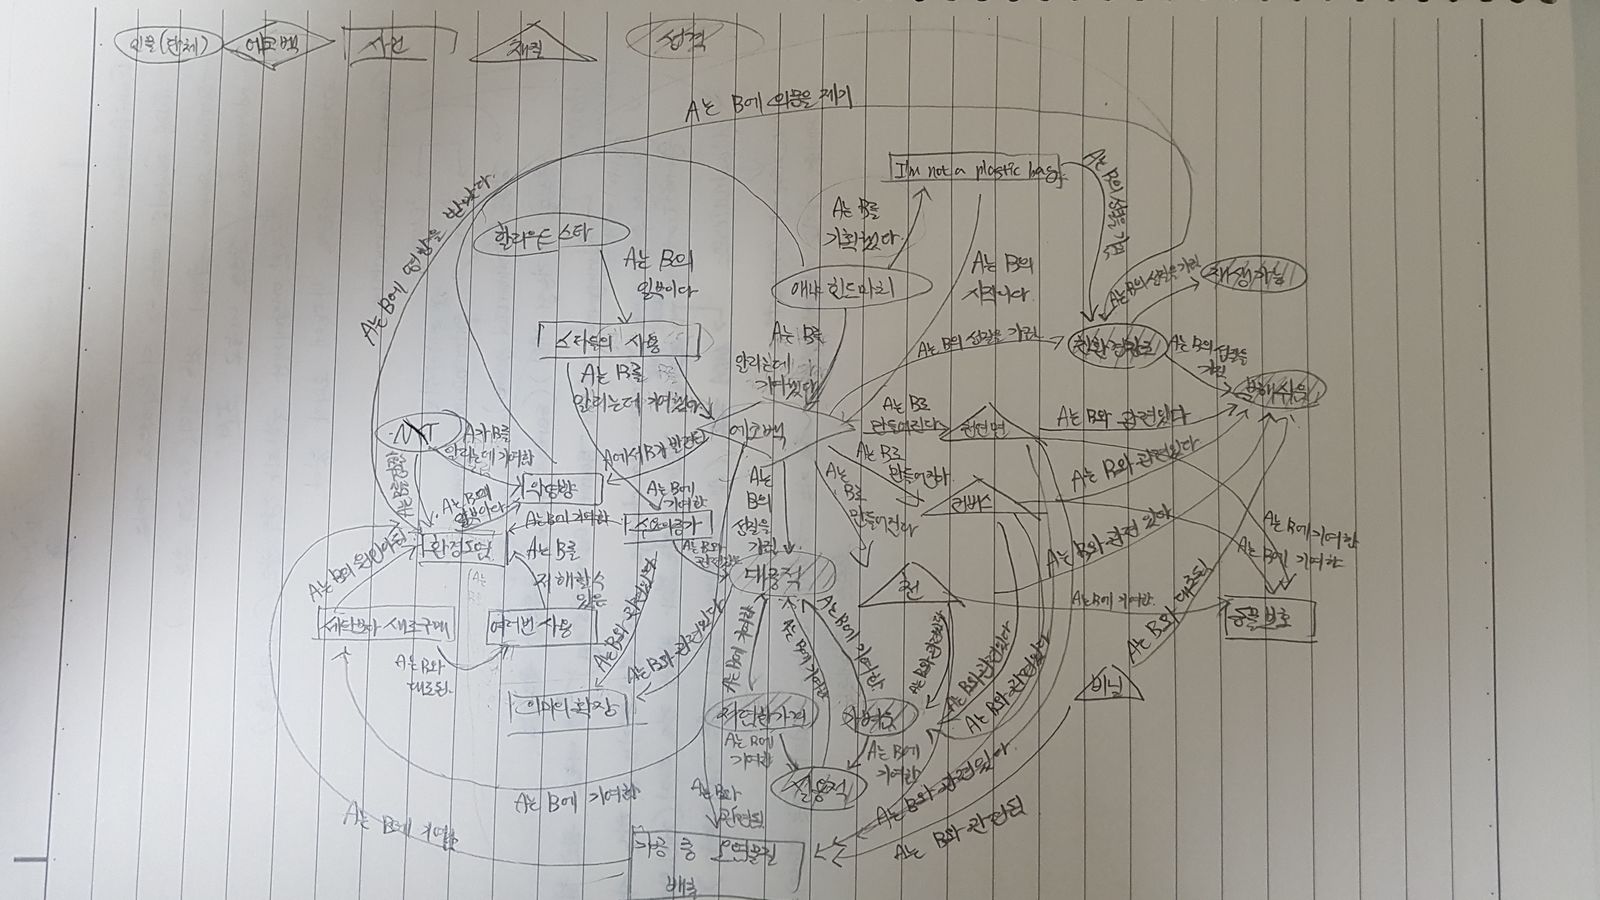 인물(단체)
에코백
사건
재질
성격
A는 B에 의문을 제기
I'm not a plastic bag
A는 B의 성질을 가짐
A는 B에 영향을 받았다.
할리우드 스타
A는 B를
기획했다.
A는 B의
일부이다
A는 B의
시작이다
애냐 힌드마치
A는 B의 성질을 가진
재생가능
스타들의 사용
A는 B를
알리는데 기여했다
A는 B를
알리는데
기여했다
A는 B의 성질을 가진
친환경적
A는 B의
성질을
가진
분해쉬움
NXT
A가 B를
알리는데 기여함
에코백
A는 B로
만들어진다
천연면
A는 B와 관련있다
A에서 B가 발견된
A는 B로
만들어진다
A는 B와 관련있다
악영향
A는 B에
기여한
A는 B의
성질을
가진
A는 B로
만들어진다
캔버스
A는 B의
일부이다
A는 B에 기여한
수요의 증가
A는 B와 관련 있다
A는 B에 기여한
A는 B에
기여한
A는 B의 원인이 된
환경오염
A는 B를
저해할 수
있은
A는 B와
대중적
천
A는 B에 기여한
동물보호
새로구매
여러번 사용
A는 B와 관련있다
A는 B와
대조된
A는 B와 관련있다
A는 B에 기여한
A는 B에 기여한
A는 B에 기여한
A는 B와 관련있다
A는 B와 관련있다
A는 B와 관련있다
A는 B와 대조된
비닐
의미의 확장
저렴한가격
A는 B에
기여한
A는 B에
기여한
실용적
A는 B에 기여한
A는 B에 기여함
A는 B와
관련된
A는 B와 관련있다
A는 B와 관련된
가공 중 오염물질
배출